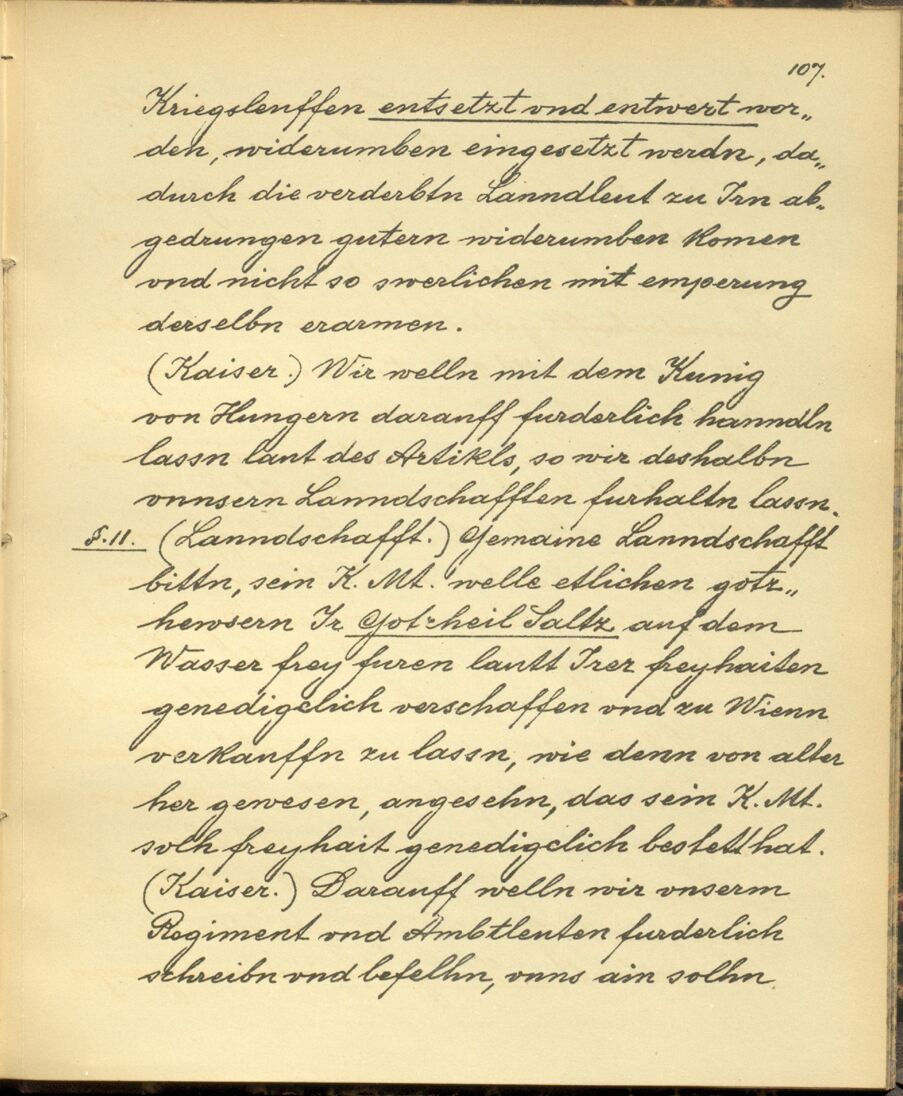 107.
Kriegsleuffen entsetzt vnd entwert wor„
den, widerumben eingesetzt werdn, da„
durch die verderbtn Lanndleut zu Irn ab„
gedrungen gutern widerumben komen
vnd nicht so swerlichen mit emperung
derselbn erarmen.
(Kaiser.) Wir welln mit dem Kunig
von Hungern darauff furderlich hanndln
lassn laut des Artikls, so wir deshalbn
vnnsern Lanndschafften furhaltn lassn.
§. 11. (Lanndschafft.) Gemaine Lanndschafft
bittn, sein K. Mt. welle etlichen gotz„
hewsern Ir Gotzheil Saltz auf dem
Wasser frey furen lautt Irer freyhaiten
genedigclich verschaffen vnd zu Wienn
verkauffn zu lassn, wie denn von alter
her gewesen, angesehn, das sein K. Mt.
solh freyhait genedigclich bestett hat.
(Kaiser.) Darauff welln wir vnserm
Regiment vnd Ambtleuten furderlich
schreibn vnd befelhn, vnns ain solhn